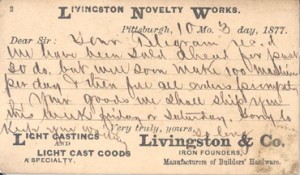 2
LIVINGSTON NOVELTY WORKS.
Pittsburgh, 10 Mo. 3 day, 1877.
Dear Sir: Your Telegram
We have been sold ahead for past
30 do. but will soon make 100 Machines
per day & then fill all orders promptly
Your goods we shall ship you
this week Friday or Saturday. Sorry to
keep you waiting so long
Very truly, yours,
LIGHT CASTINGS
AND
LIGHT CAST GOODS
A SPECIALTY.
Livingston & Co.
IRON FOUNDERS,
Manufacturers of Builders' Hardware.